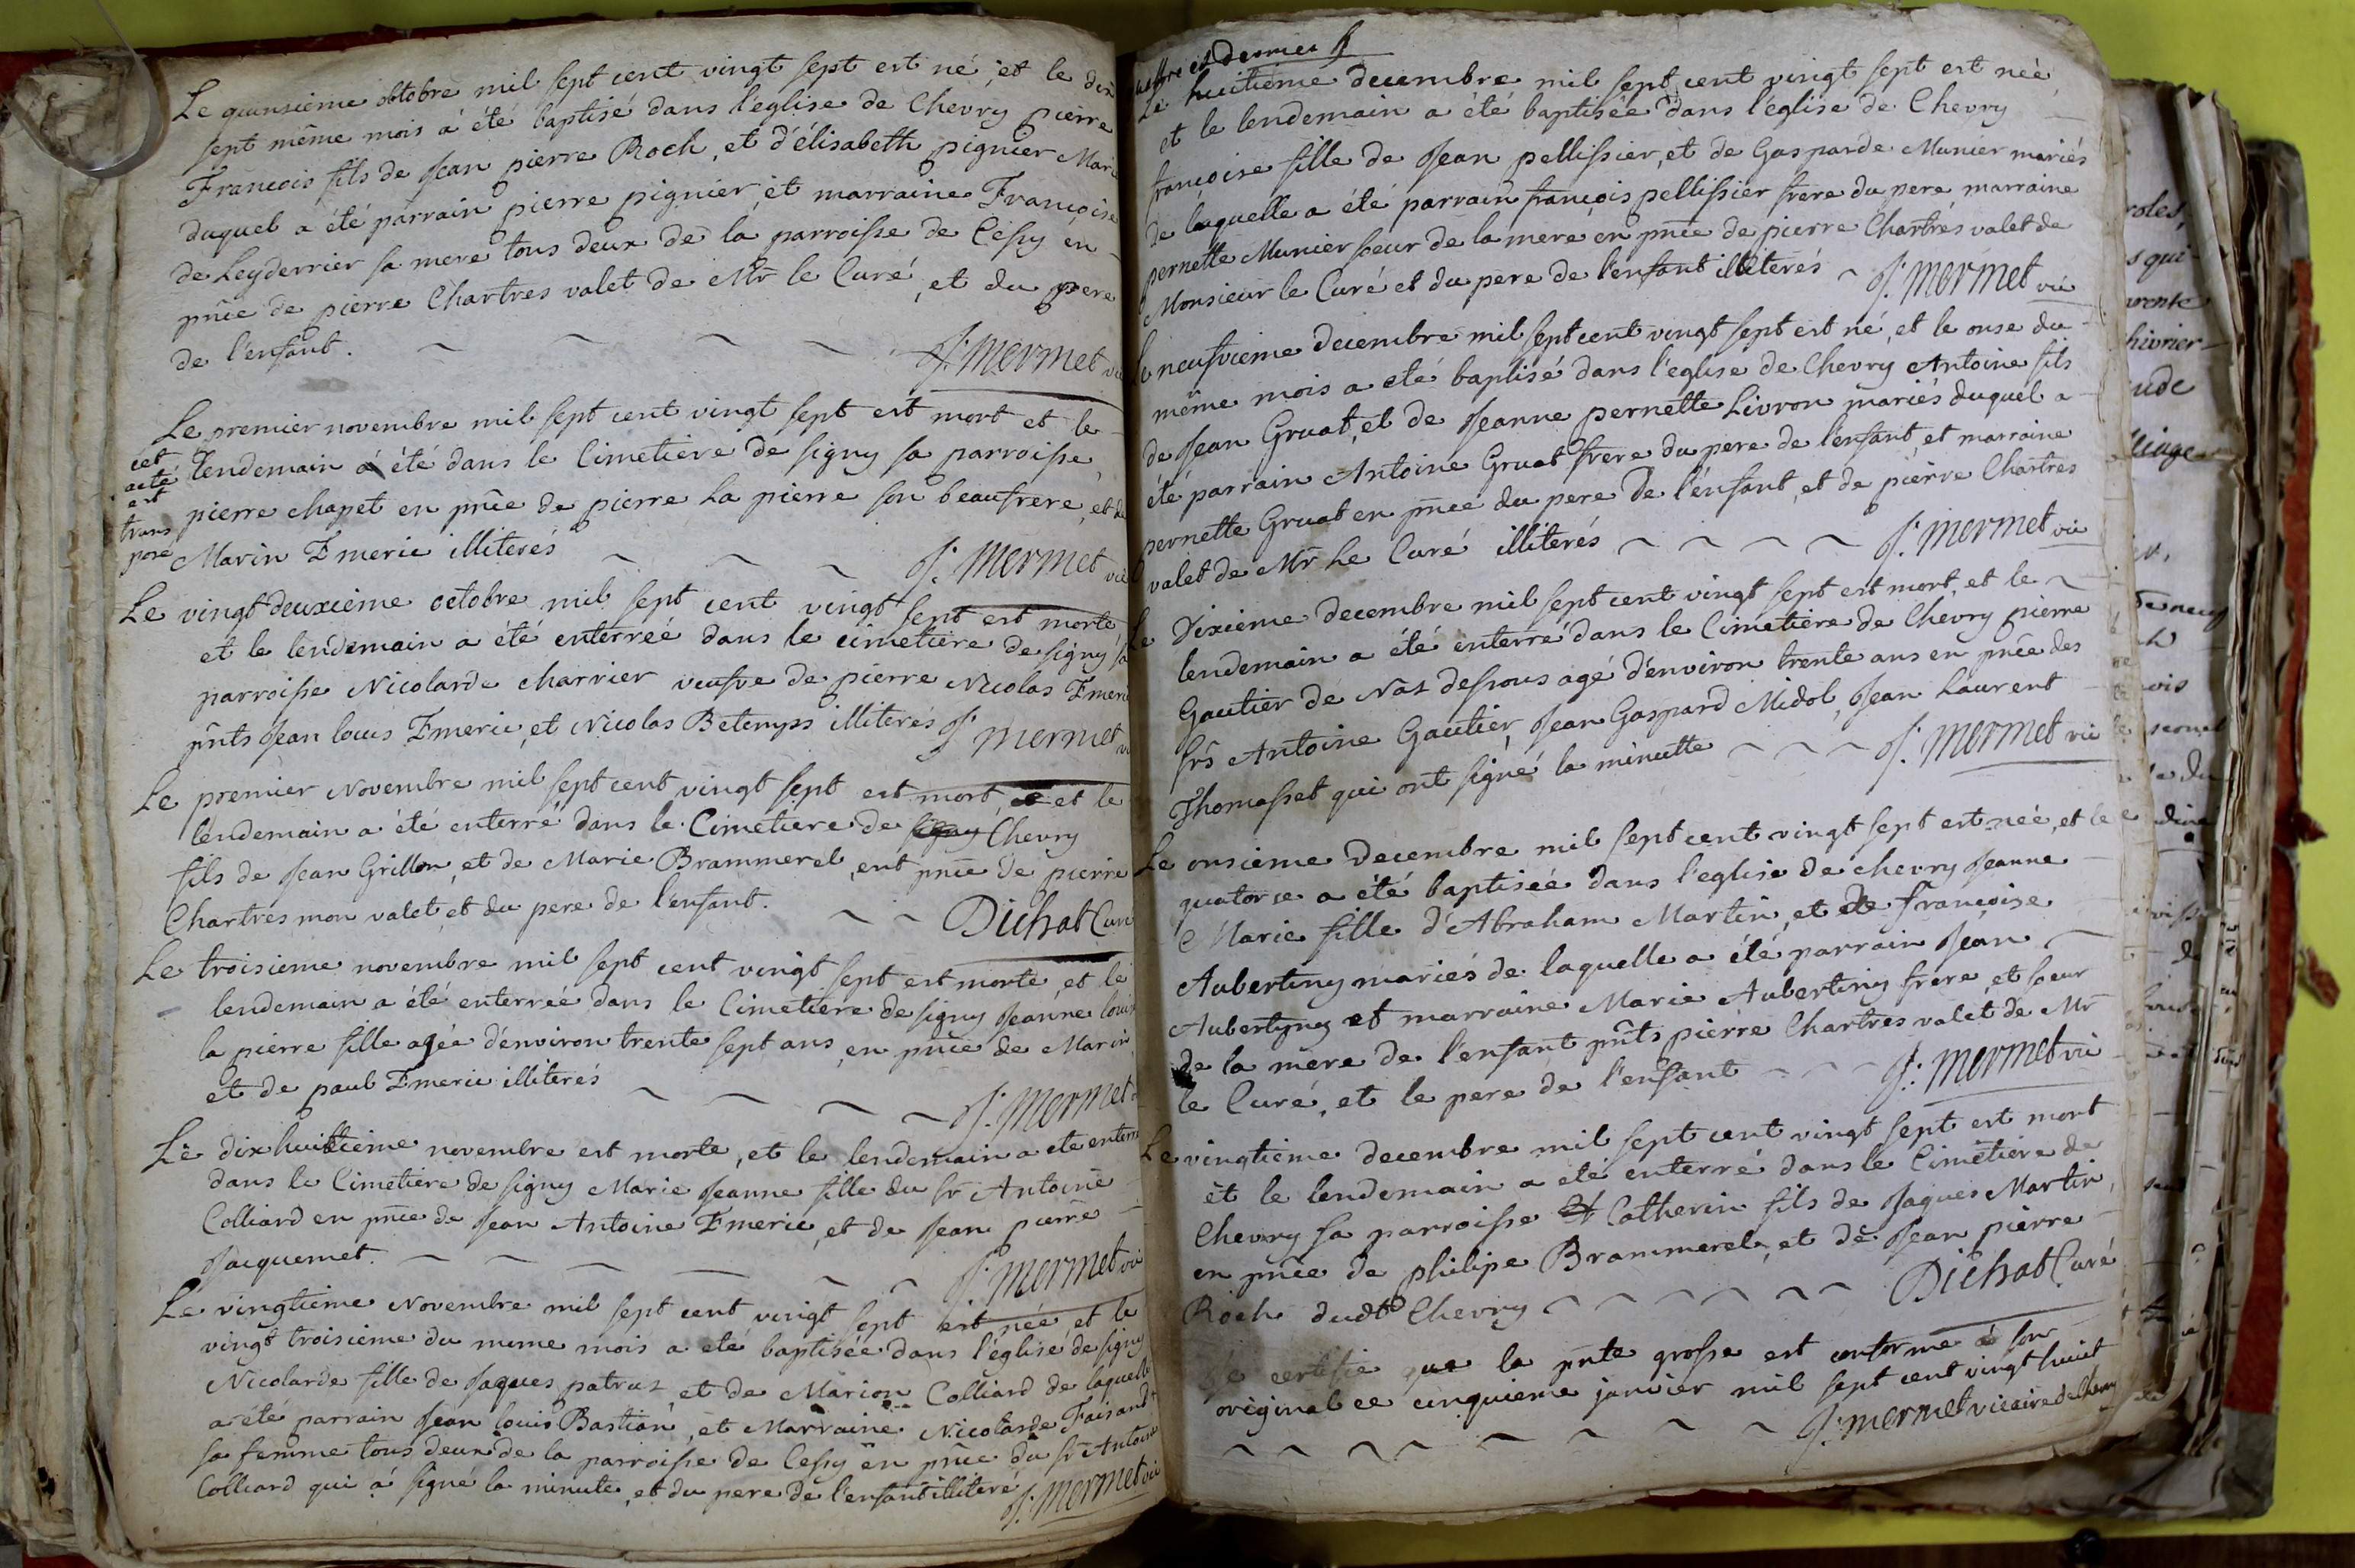 Le quinsieme obtobre mil sept cent vingt sept est né, et le dix
sept même mois a été baptisé dans l'église de Chevry pierre
François fils de Jean pierre Roch, et d'élisabeth pignier Mariés
duquel a été parrain pierre pignier, et marraine Françoise
de Leyderrier sa mere tous deux de la parroisse de Cessy en
pnce de pierre Chartres valet de Mr le Curé, et du pere
de l'enfant.
J. Mermet vic
Le premier novembre mil sept cent vingt sept est mort et le
lendemain a été dans le Cimetiere de signy sa parroisse
pierre chapet en pnce de pierre La pierre son beaufrere, et de
Marin Emerie illiterés
J. Mermet vic
cet
acte
est
trans
posé
Le vingt deuxcieme octobre mil sept cent vingt sept est morte
et le lendemain a été enterreé dans le cimetiere de signy sa
parroisse Nicolarde charrier veufve de pierre Nicolas Emerie
pnts Jean louis Emerie, et Nicolas Betemps illiterés J. Mermet vic
Le premier Novembre mil sept cent vingt sept est mort, et le
lendemain a été enterré dans le Cimetiere de signy Chevry
fils de Jean Grillon, et de Marie Brammerel, ent pnce de pierre
Chartres mon valet, et du pere de l'enfant.
Dichat Curé
Le troisieme novembre mil sept cent vingt sept est morte, et le
lendemain a été enterreé dans le Cimetiere de signy Jeanne louise
la pierre fille ageé d'environ trente sept ans, en pnce de Marin
et de paul Emerie illiterés
J. Mermet
Le dix huittieme novembre est morte, et le lendemain a ete enterré
dans le Cimetiere de signy Marie Jeanne fille du sr Antoine
Colliard en pnce de Jean Antoine Emerie, et de Jean pierre
Jacquemet.
J. Mermet vic
Le vingtieme Novembre mil sept cent vingt sept est née et le
vingt troisieme du meme mois a eté baptisée dans l'église de signy
Nicolarde fille de Jaques patraz et de Marion Colliard de laquelle
a été parrain Jean louis Bastian, et Marraine Nicolarde Faisand
sa femme tous deux de la parroisse de Cessy en pnce du sr Antoine
Colliard qui a signé la minute, et du pere de l'enfant illiteré
J. Mermet vic
et dernier
Le huitieme decembre mil sept cent vingt sept est néé
et le lendemain a été baptisée dans l'église de Chevry
francoise fille de Jean pellissier, et de Gasparde Munier mariés
de laquelle a été parrain françois pellissier frere du pere marraine
pernette Munier soeur de la mere en pnce de pierre Chartres valet de
Monsieur le Curé et du pere de l'enfant illiterés J. Mermet vic
Le neufvieme decembre mil sept cent vingt sept est né, et le onse du
même mois a été baptisé dans l'eglise de Chevry Antoine fils
de Jean Gruat, et de Jeanne pernette Livron mariés duquel a
été parrain Antoine Gruat frere du pere de l'enfant et marraine
pernette Gruat en pnce du pere de l'enfant, et de pierre Chartres
valet de Mr le Curé illiterés J. Mermet vic
Le dixieme decembre mil sept cent vingt sept est mort, et le
lendemain a été enterré dans le Cimetiere de Chevry pierre
Gautier de Naz dessous agé d'environ trente ans en pnce des
srs Antoine Gautier, Jean Gaspard Midol, Jean Laurent
Thomasset qui ont signé la minutte J. Mermet vic
Le onsieme decembre mil sept cent vingt sept est née, et le
quatorze a été baptiseé dans l'eglise de chevry Jeanne
Marie fille d'Abraham Martin, et de françoise
Aubertiny mariés de laquelle a été parrain Jean
Aubertyny et marraine Marie Aubertiny frere, et soeur
de la mere de l'enfant pnts pierre Chartres valet de Mr
le Curé, et le pere de l'enfant J. Mermet vic
Le vingtieme decembre mil sept cent vingt sept est mort
et le lendemain a eté enterré dans le Cimetiere de
Chevry sa parroisse Catherin fils de Jaques Martin,
en pnce de philipe Brammerel, et de Jean pierre
Roch dudt Chevry Dichat Curé
Je certifie que la pnte grosse est conforme a son
original ce cinquieme janvier mil sept cent vingt huit
J. Mermet vicaire de Chevry